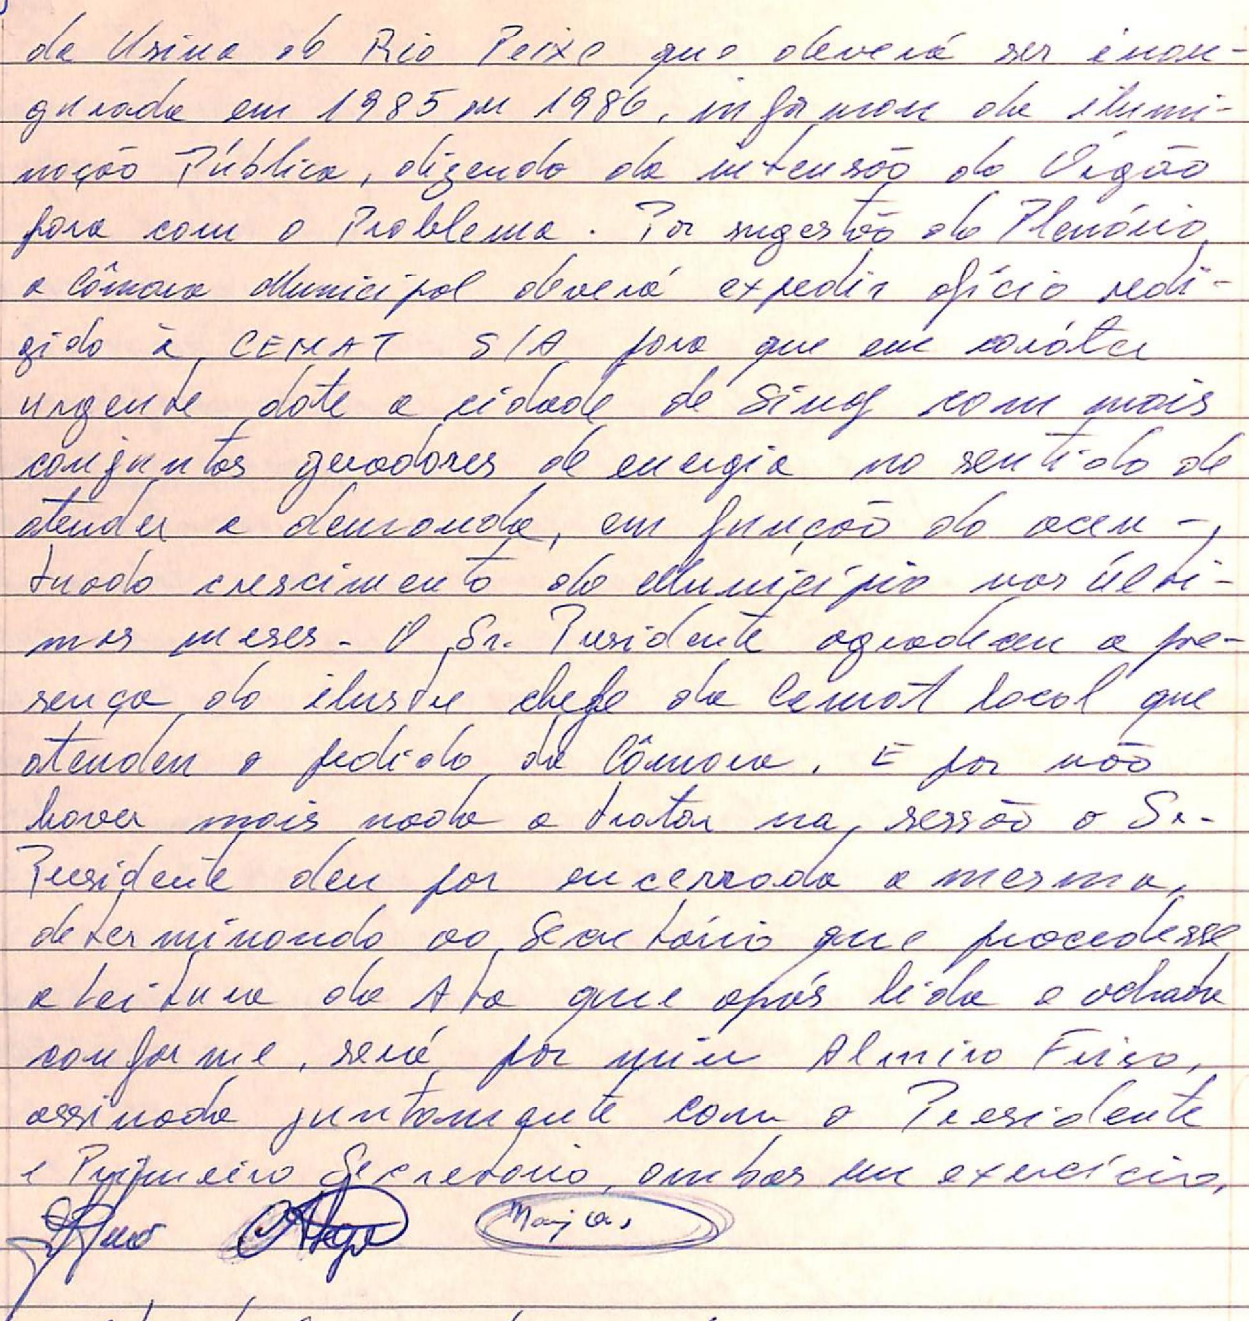 da Usina do Rio Peixe que deverá ser inau-
gurada em 1985 ou 1986, informou da ilumi-
nação Pública, dizendo da intensão do Orgão
para com o Problema. Por sugestão do Plenário,
a Câmara Municipal deverá expedir ofício redi-
gido à CEMAT S/A para que em caráter
urgente dote a cidade de Sinop com mais
conjuntos geradores de energia no sentido de
atender a demanda, em função do acen-
tuado crescimento do Município nos últi-
mos meses. O Sr. Presidente agradeceu a pre-
sença do ilustre chefe da Cemat local que
atendeu o pedido da Câmara. E por não
haver mais nada a tratar na sessão o Sr.
Presidente deu por encerrada a mesma,
determinando ao Secretário que procedesse
a leitura da Ata que após lida e achada
conforme, será por mim Almiro Friso,
assinada juntamente com o Presidente
e Primeiro Secretário, ambos em exercício,